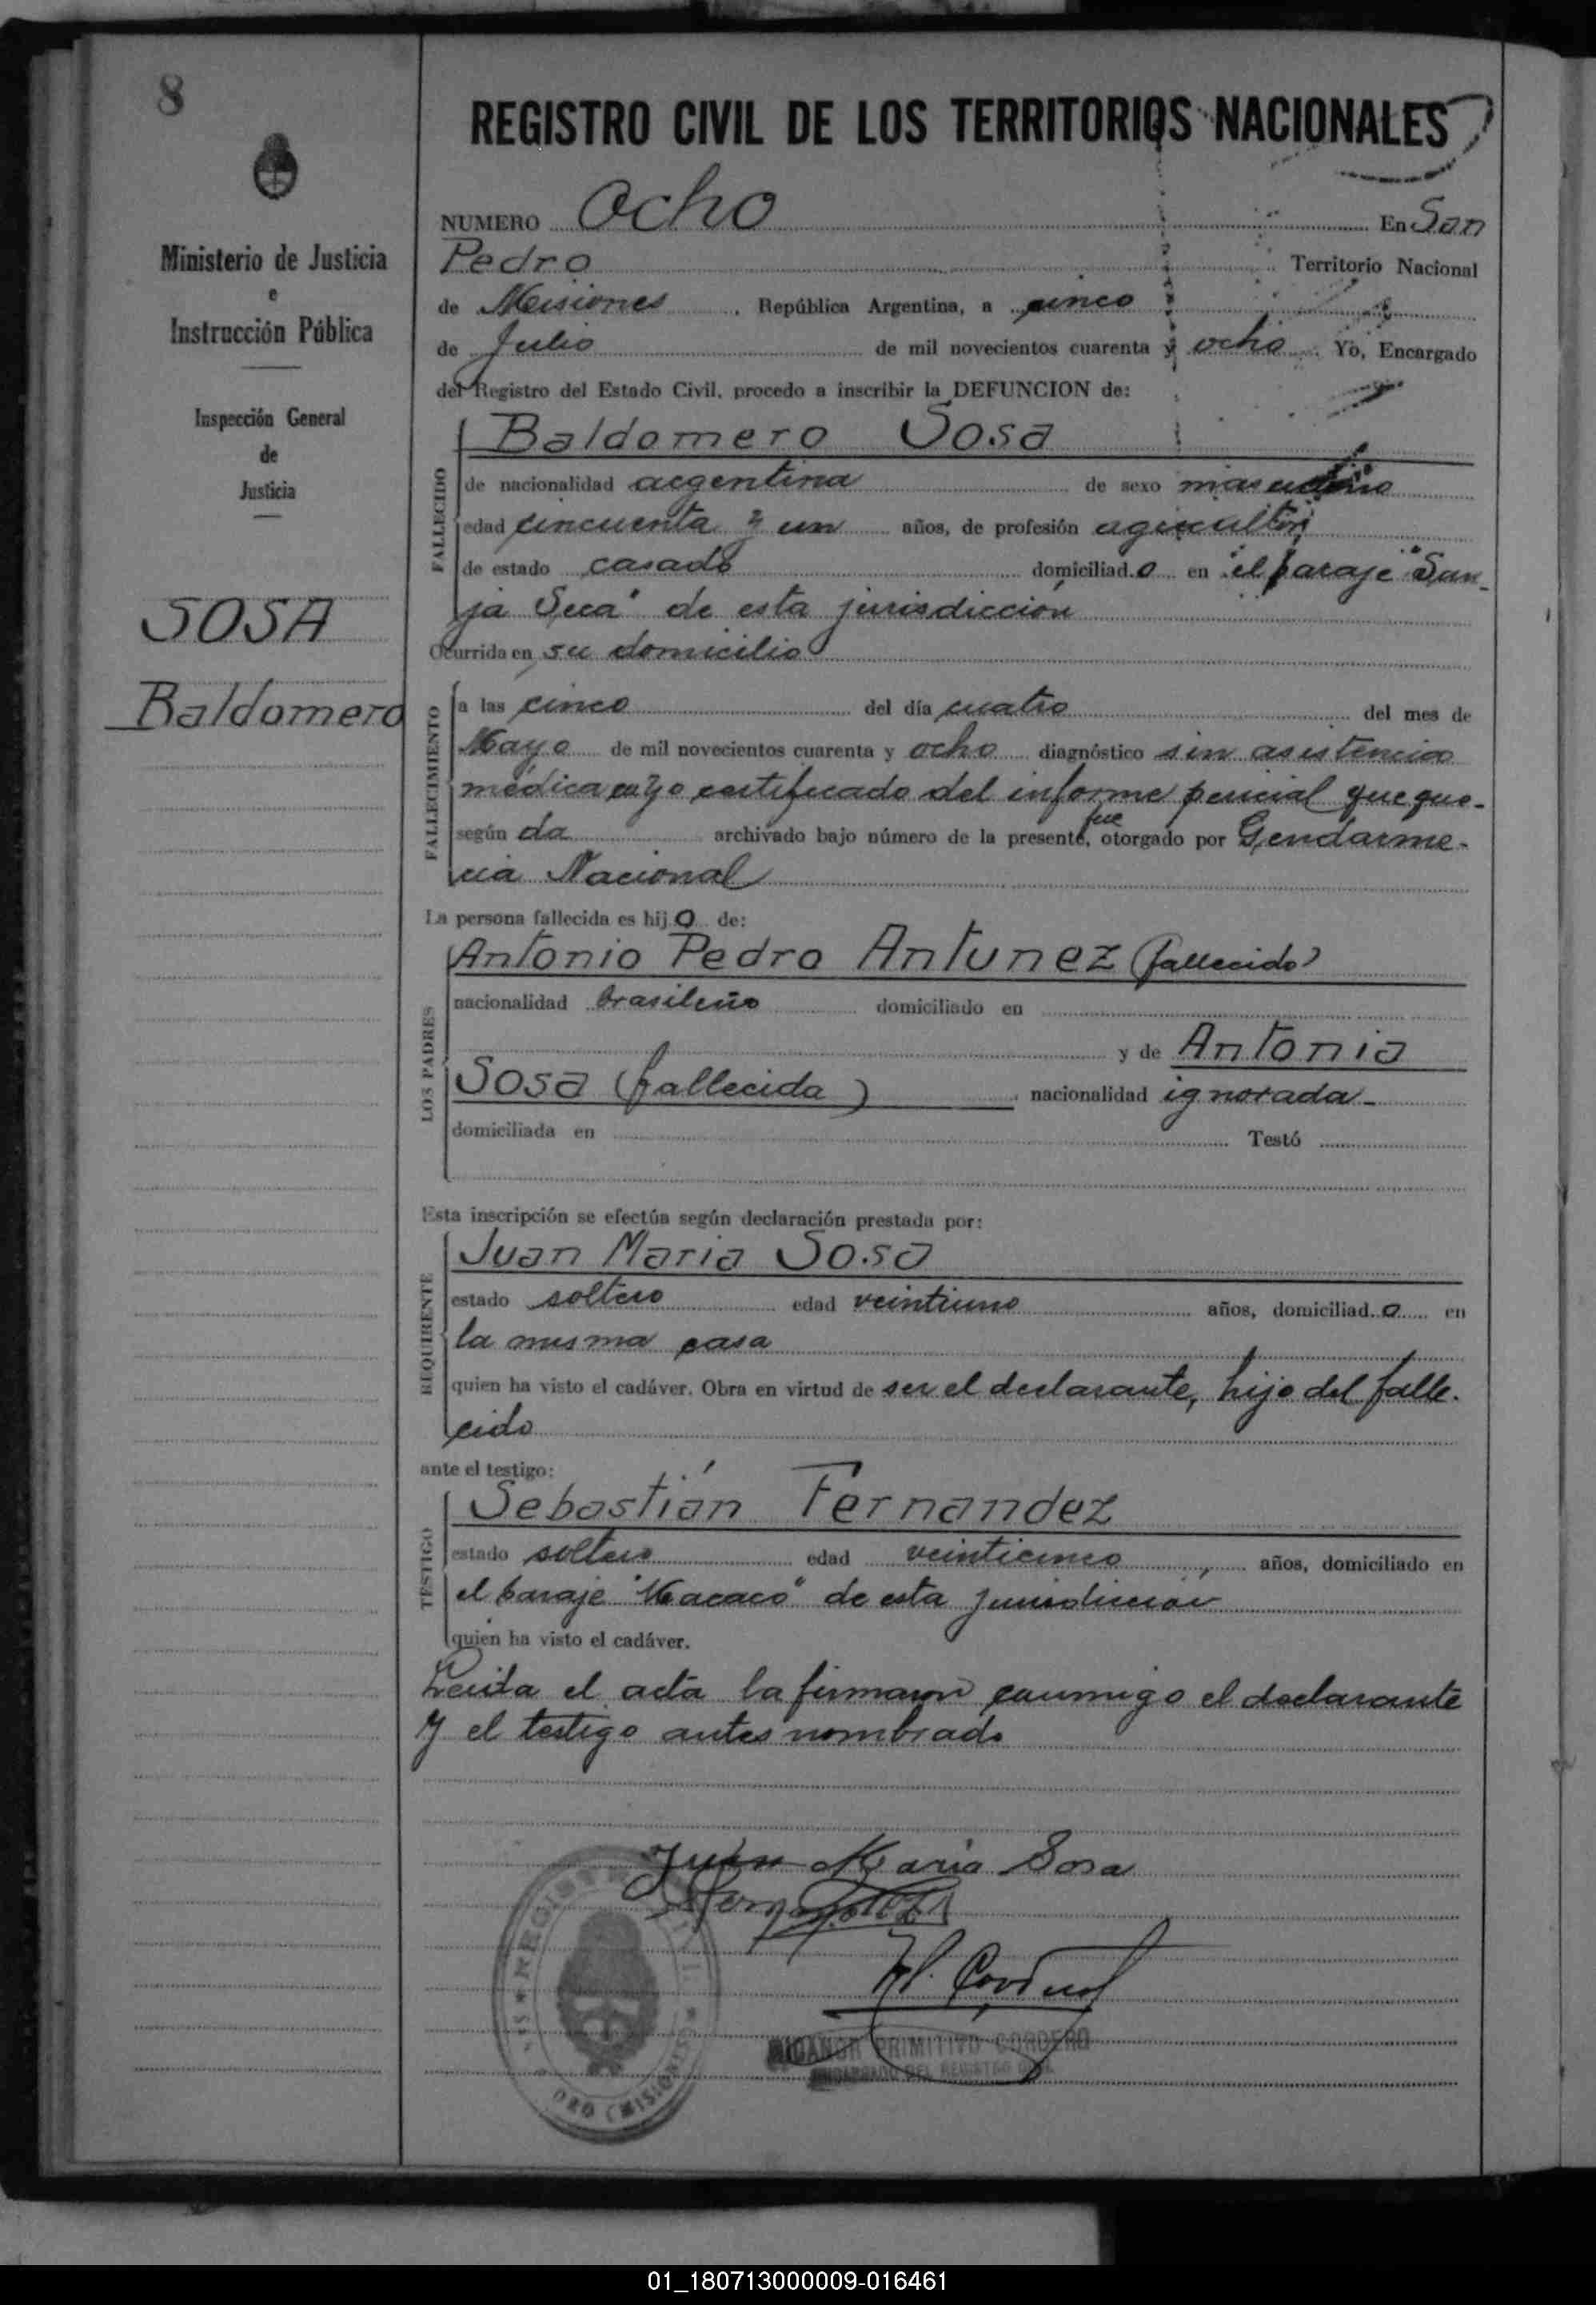 8
REGISTRO CIVIL DE LOS TERRITORIOS NACIONALES
Ministerio de Justicia
e
Instrucción Pública
Inspección General
de
Justicia
SOSA
Baldomero
NUMERO Ocho En San
Pedro Territorio Nacional
de Misiones, República Argentina, a cinco
de Julio de mil novecientos cuarenta y ocho Yo, Encargado
del Registro del Estado Civil, procedo a inscribir la DEFUNCION de:
FALLECIDO
Baldomero Sosa
de nacionalidad argentina de sexo masculino
edad cincuenta y un años, de profesión agricultor
de estado casado domiciliado en el paraje "San-
ja Seca" de esta jurisdicción
Ocurrida en su domicilio
FALLECIMIENTO
a las cinco del día cuatro del mes de
Mayo de mil novecientos cuarenta y ocho diagnóstico sin asistencia
médica cuyo certificado del informe pericial que que-
según da archivado bajo número de la presente, fue otorgado por Gendarme-
ria Nacional
La persona fallecida es hijo de:
LOS PADRES
Antonio Pedro Antunez (fallecido)
nacionalidad brasileño domiciliado en
y de Antonia
Sosa (fallecida), nacionalidad ignorada-
domiciliada en Testó
Esta inscripción se efectúa según declaración prestada por:
REQUIRENTE
Juan Maria Sosa
estado soltero edad veintiuno años, domiciliado en
la misma casa
quien ha visto el cadáver. Obra en virtud de ser el declarante, hijo del falle-
cido
ante el testigo:
TESTIGO
Sebastián Fernandez
estado soltero edad veinticinco, años, domiciliado en
el paraje "Macaco" de esta jurisdicción
quien ha visto el cadáver.
Leida el acta la firmaron conmigo el declarante
y el testigo antes nombrado
Juan Maria Sosa
Fernandez
NICANOR PRIMITIVO CORDERO
ENCARGADO DEL REGISTRO CIVIL
01_180713000009-016461